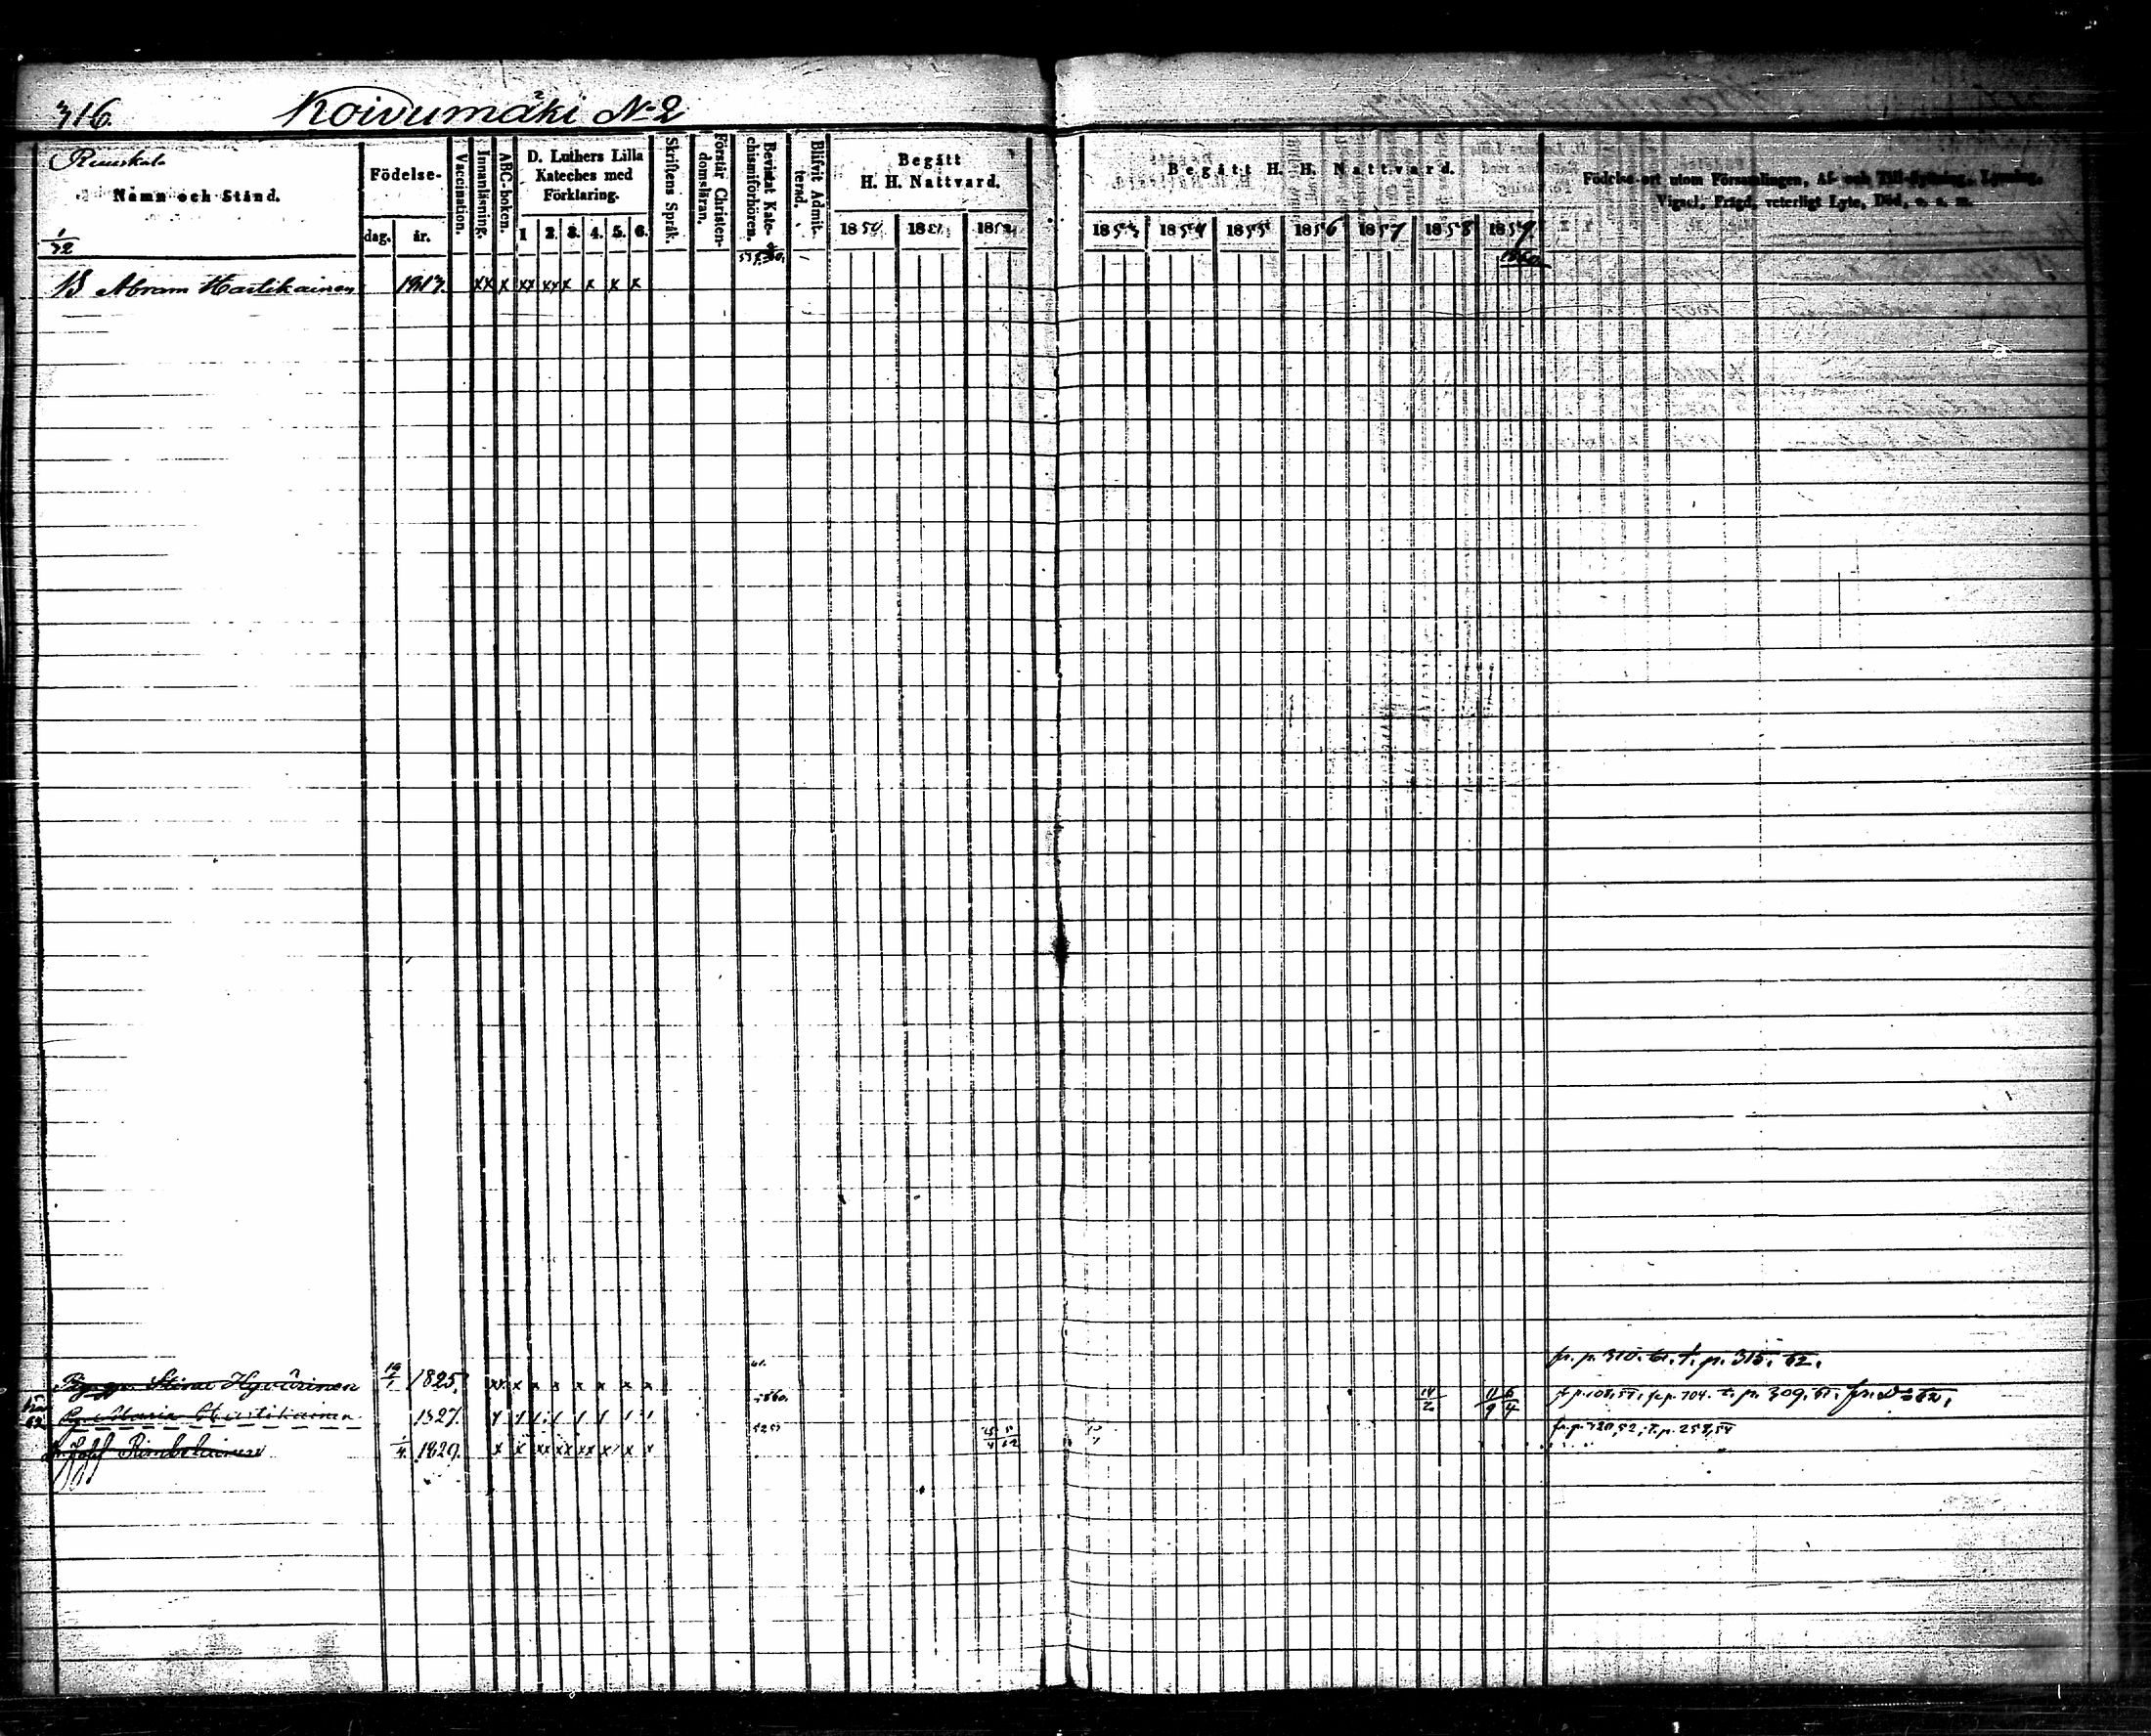 316. Koivumäki N:o 2
Namn och Stånd.
Födelse-
dag. år.
Vaccination.
Innanläsning.
ABC-boken.
D. Luthers Lilla
Kateches med
Förklaring.
1 2. 3. 4. 5. 6.
Skriftens Språk.
Förstår Christen-
domsläran.
Bevistat Kate-
chismiförhören.
Blifvit Admit-
terad.
Begått
H. H. Nattvard.
1850 1851 1852
Begått H. H. Nattvard.
1853 1854 1855 1856 1857 1858 1859
1860
Födelse-ort utom Församlingen, Af- och Till-flyttning, Lysning,
Vigsel, Frägd, veterligt Lyte, Död, o. s. m.
1/22
B Abram Hartikainen 1817. xx x xx xx x x x x
fr. p. 310. 61. t. p. 315. 62.
Stina Hyvärinen 19/1 1825. xx x x x x x x x 61.
Maria Hartikainen 1827. 1860. 14/2 11/9 6/4 t. p. 309. 61.
Rimbeläinen 1/4 1829. x x xx xx xx x x x 5253 fr. p. 720, 52, t. p. 258, 54